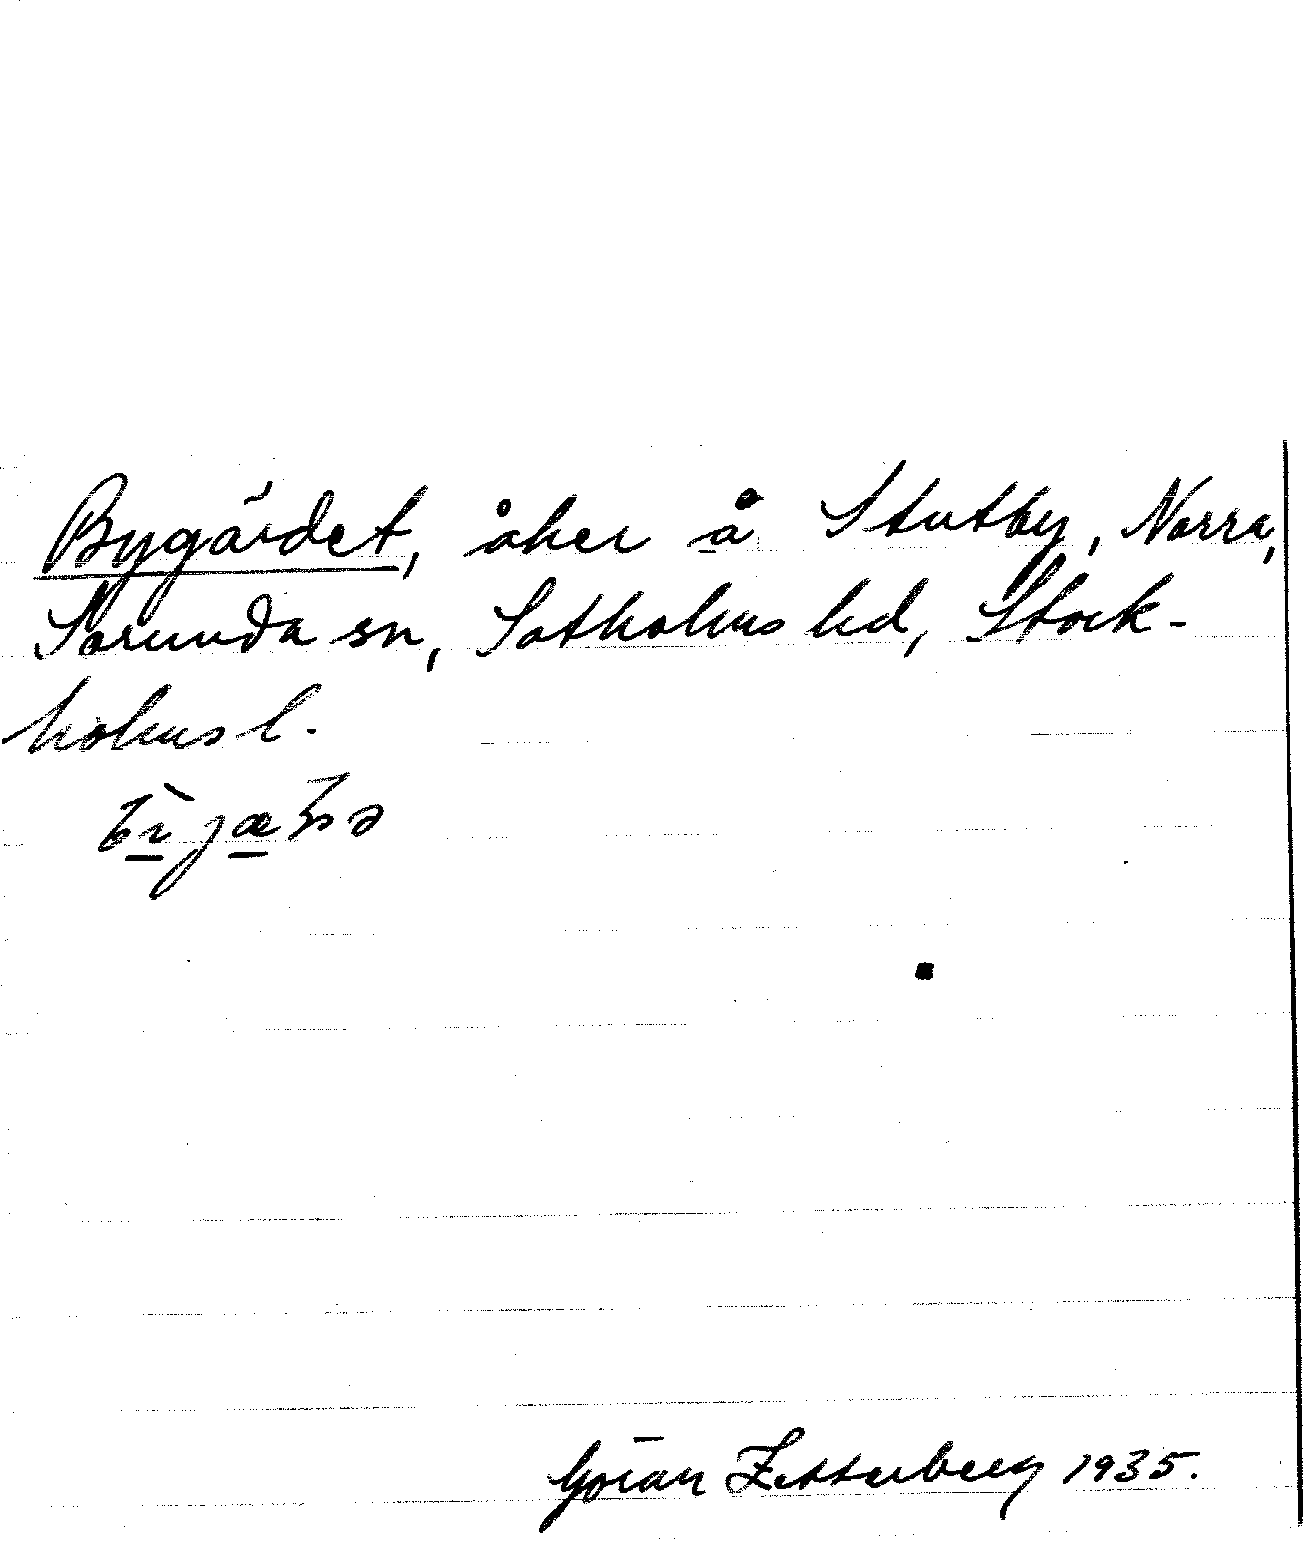 Bygärdet, åker å Stutby, Norra,
Sorunda sn, Sotholms hd, Stock-
holms l.
Göran Zetterberg 1935.